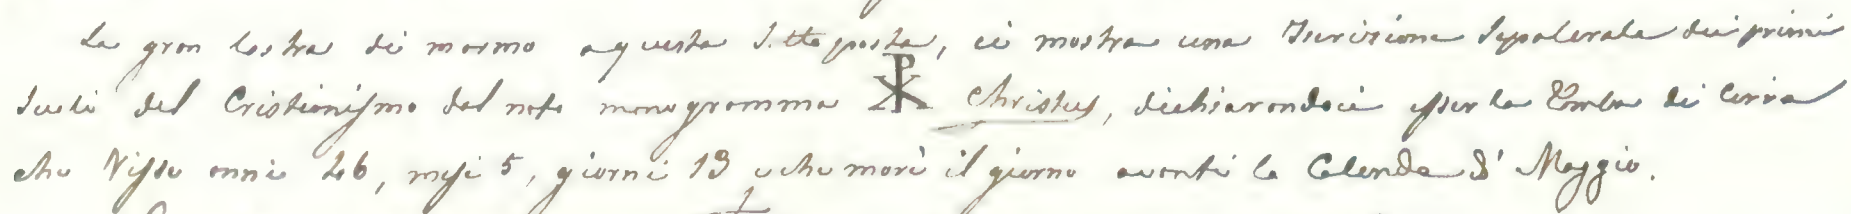 La gran lastra di marmo a questa sottoposta, ci mostra una Iscrizione Sepolcrale dei primi
Secoli del Cristianismo dal noto monogramma ☧ Christus, dichiarandoci esser la Tomba di Cirra
che Visse anni 26, mesi 5, giorni 13 e che morì il giorno avanti le Calende d' Maggio.